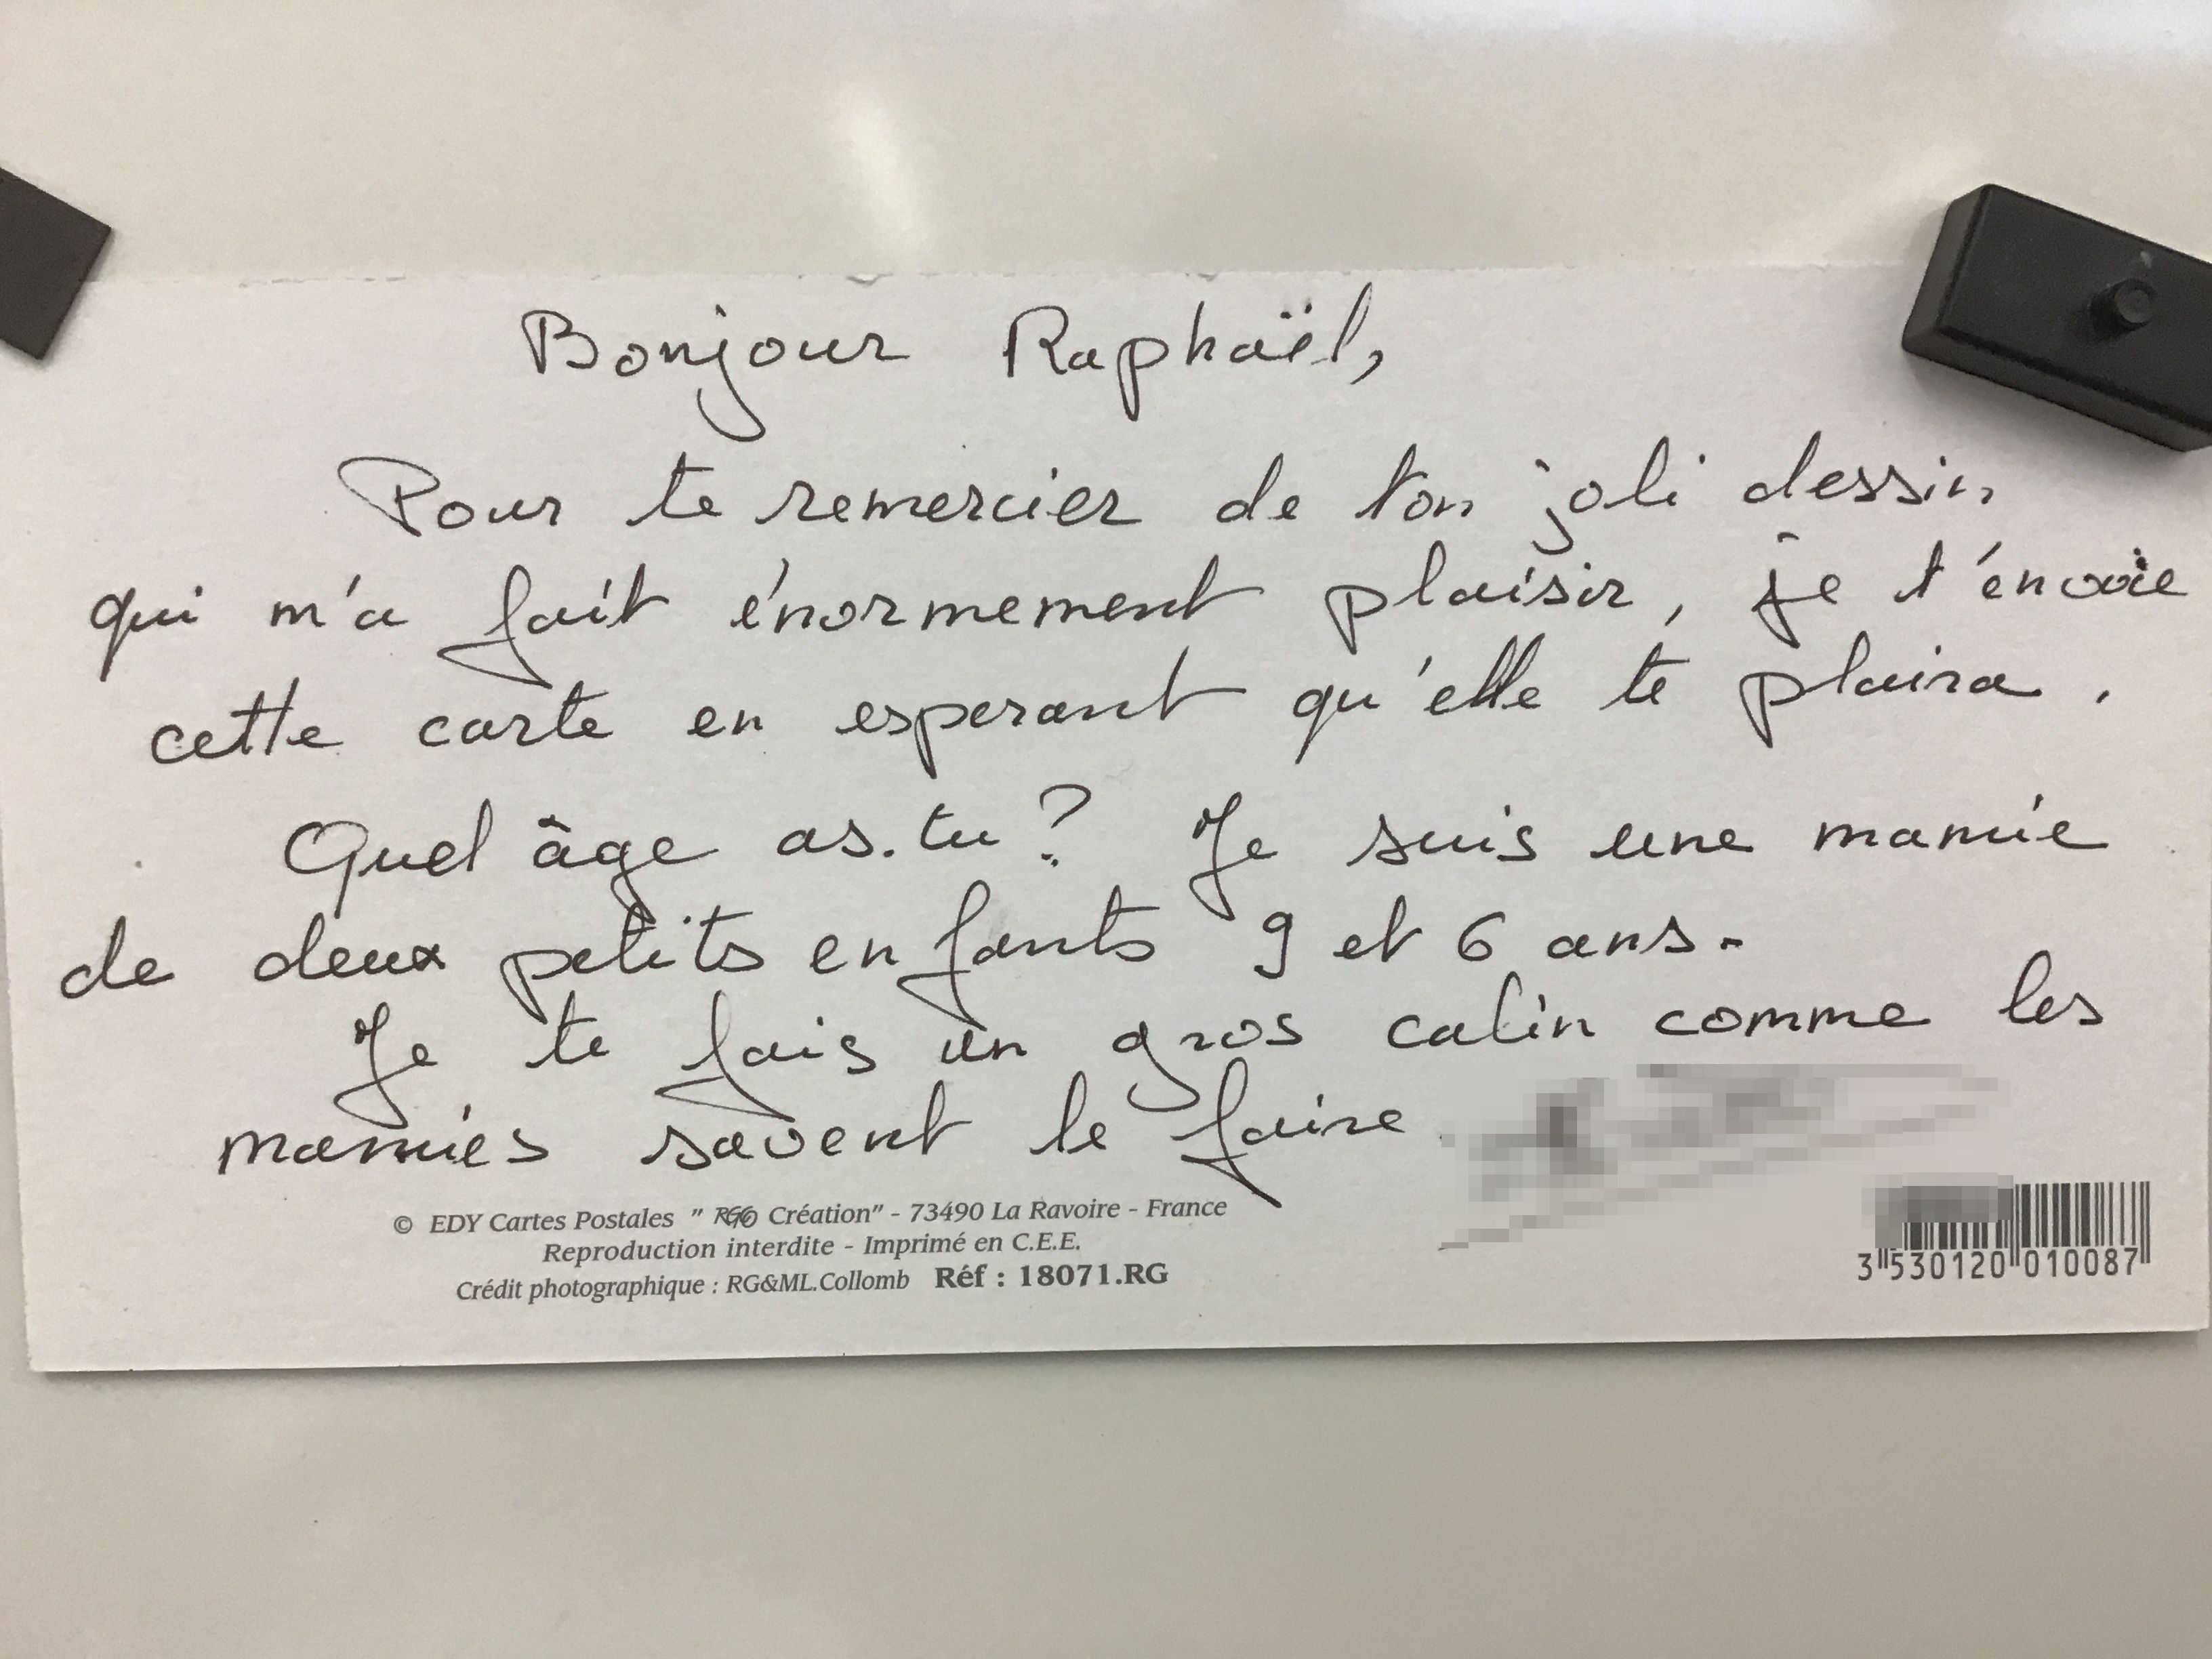 Bonjour Raphaël,
Pour te remercier de ton joli dessin
qui m'a fait énormement plaisir, je t'envoie
cette carte en esperant qu'elle te plaira.
Quel âge as-tu ? Je suis une mamie
de deux petits enfants 9 et 6 ans.
Je te fais un gros calin comme les
mamies savent le faire.
© EDY Cartes Postales " RG Création" - 73490 La Ravoire - France
Reproduction interdite - Imprimé en C.E.E.
Crédit photographique : RG&ML.Collomb Réf : 18071.RG
3 530120 010087